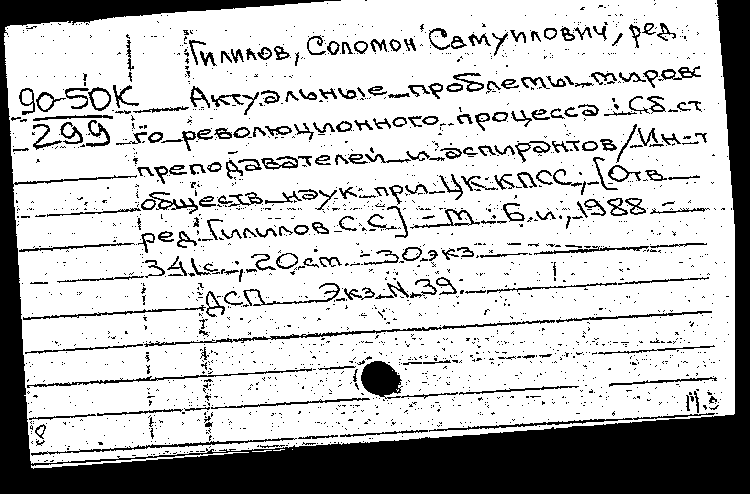 Гилилов, Соломон Самуилович, ред.
90-50К
299
Актуальные проблемы мирово
го революционного процесса : Сб. ст.
преподавателей и аспирантов / Ин-т
обществ. наук при ЦК КПСС ; [Отв.
ред. Гилилов С.С.] - М. : Б.и., 1988 -
341с. ; 20 см. - 30 экз.
ДСП Экз. N 39.
8
М.